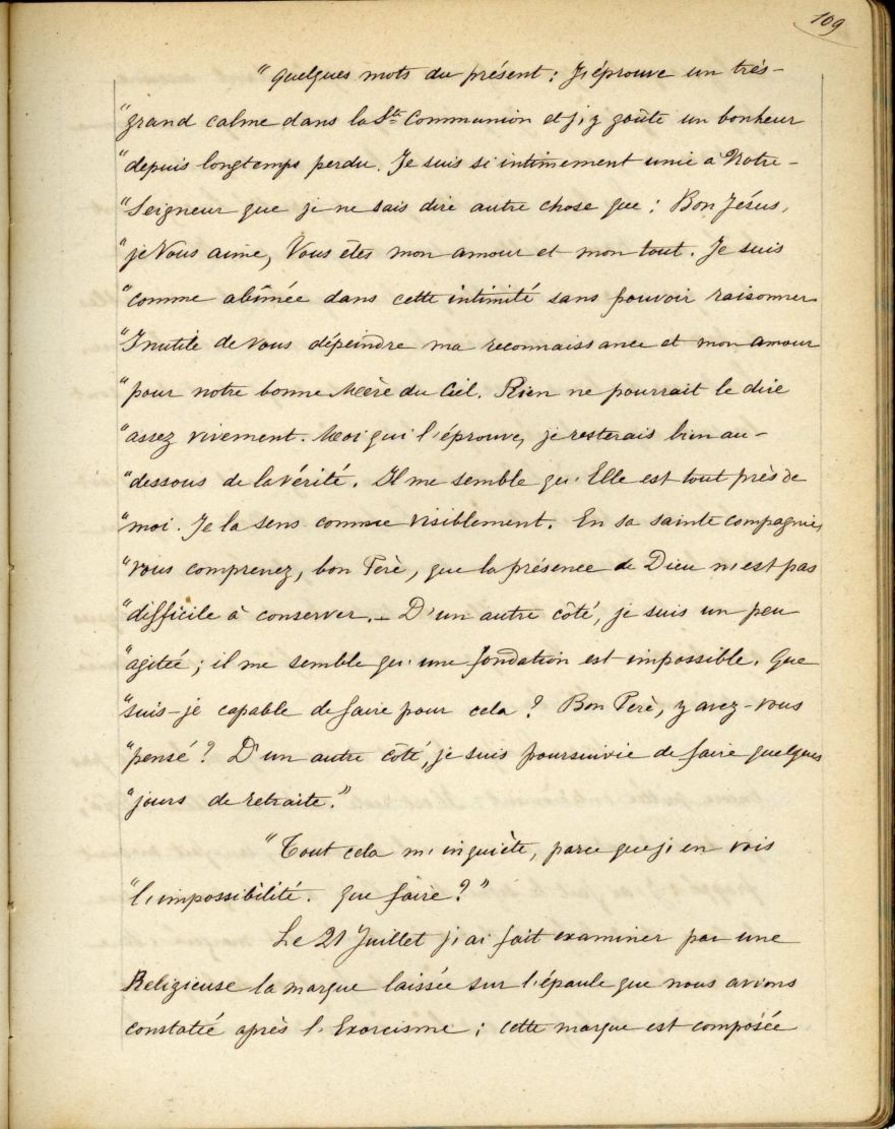 109
"Quelques mots du présent : J'éprouve un très-
"grand calme dans la Ste Communion et j'y goûte un bonheur
"depuis longtemps perdu. Je suis si intimement unie à Notre-
"Seigneur que je ne sais dire autre chose que : Bon Jésus,
"je Vous aime, Vous êtes mon amour et mon tout. Je suis
"comme abîmée dans cette intimité sans pouvoir raisonner
"Inutile de vous dépeindre ma reconnaissance et mon amour
"pour notre bonne Mère du Ciel. Rien ne pourrait le dire
"assez vivement. Moi qui l'éprouve, je resterais bien au-
"dessous de la vérité. Il me semble qu'Elle est tout près de
"moi. Je la sens comme visiblement. En sa sainte compagnie,
"vous comprenez, bon Père, que la présence de Dieu n'est pas
"difficile à conserver. - D'un autre côté, je suis un peu
"agitée ; il me semble qu'une fondation est impossible. Que
"suis-je capable de faire pour cela ? Bon Père, y avez-vous
"pensé ? D'un autre côté, je suis poursuivie de faire quelques
"jours de retraite."
"Tout cela m'inquiète, parce que j'en vois
"l'impossibilité. Que faire ?"
Le 21 Juillet j'ai fait examiner par une
Religieuse la marque laissée sur l'épaule que nous avions
constatée après l'Exorcisme ; cette marque est composée